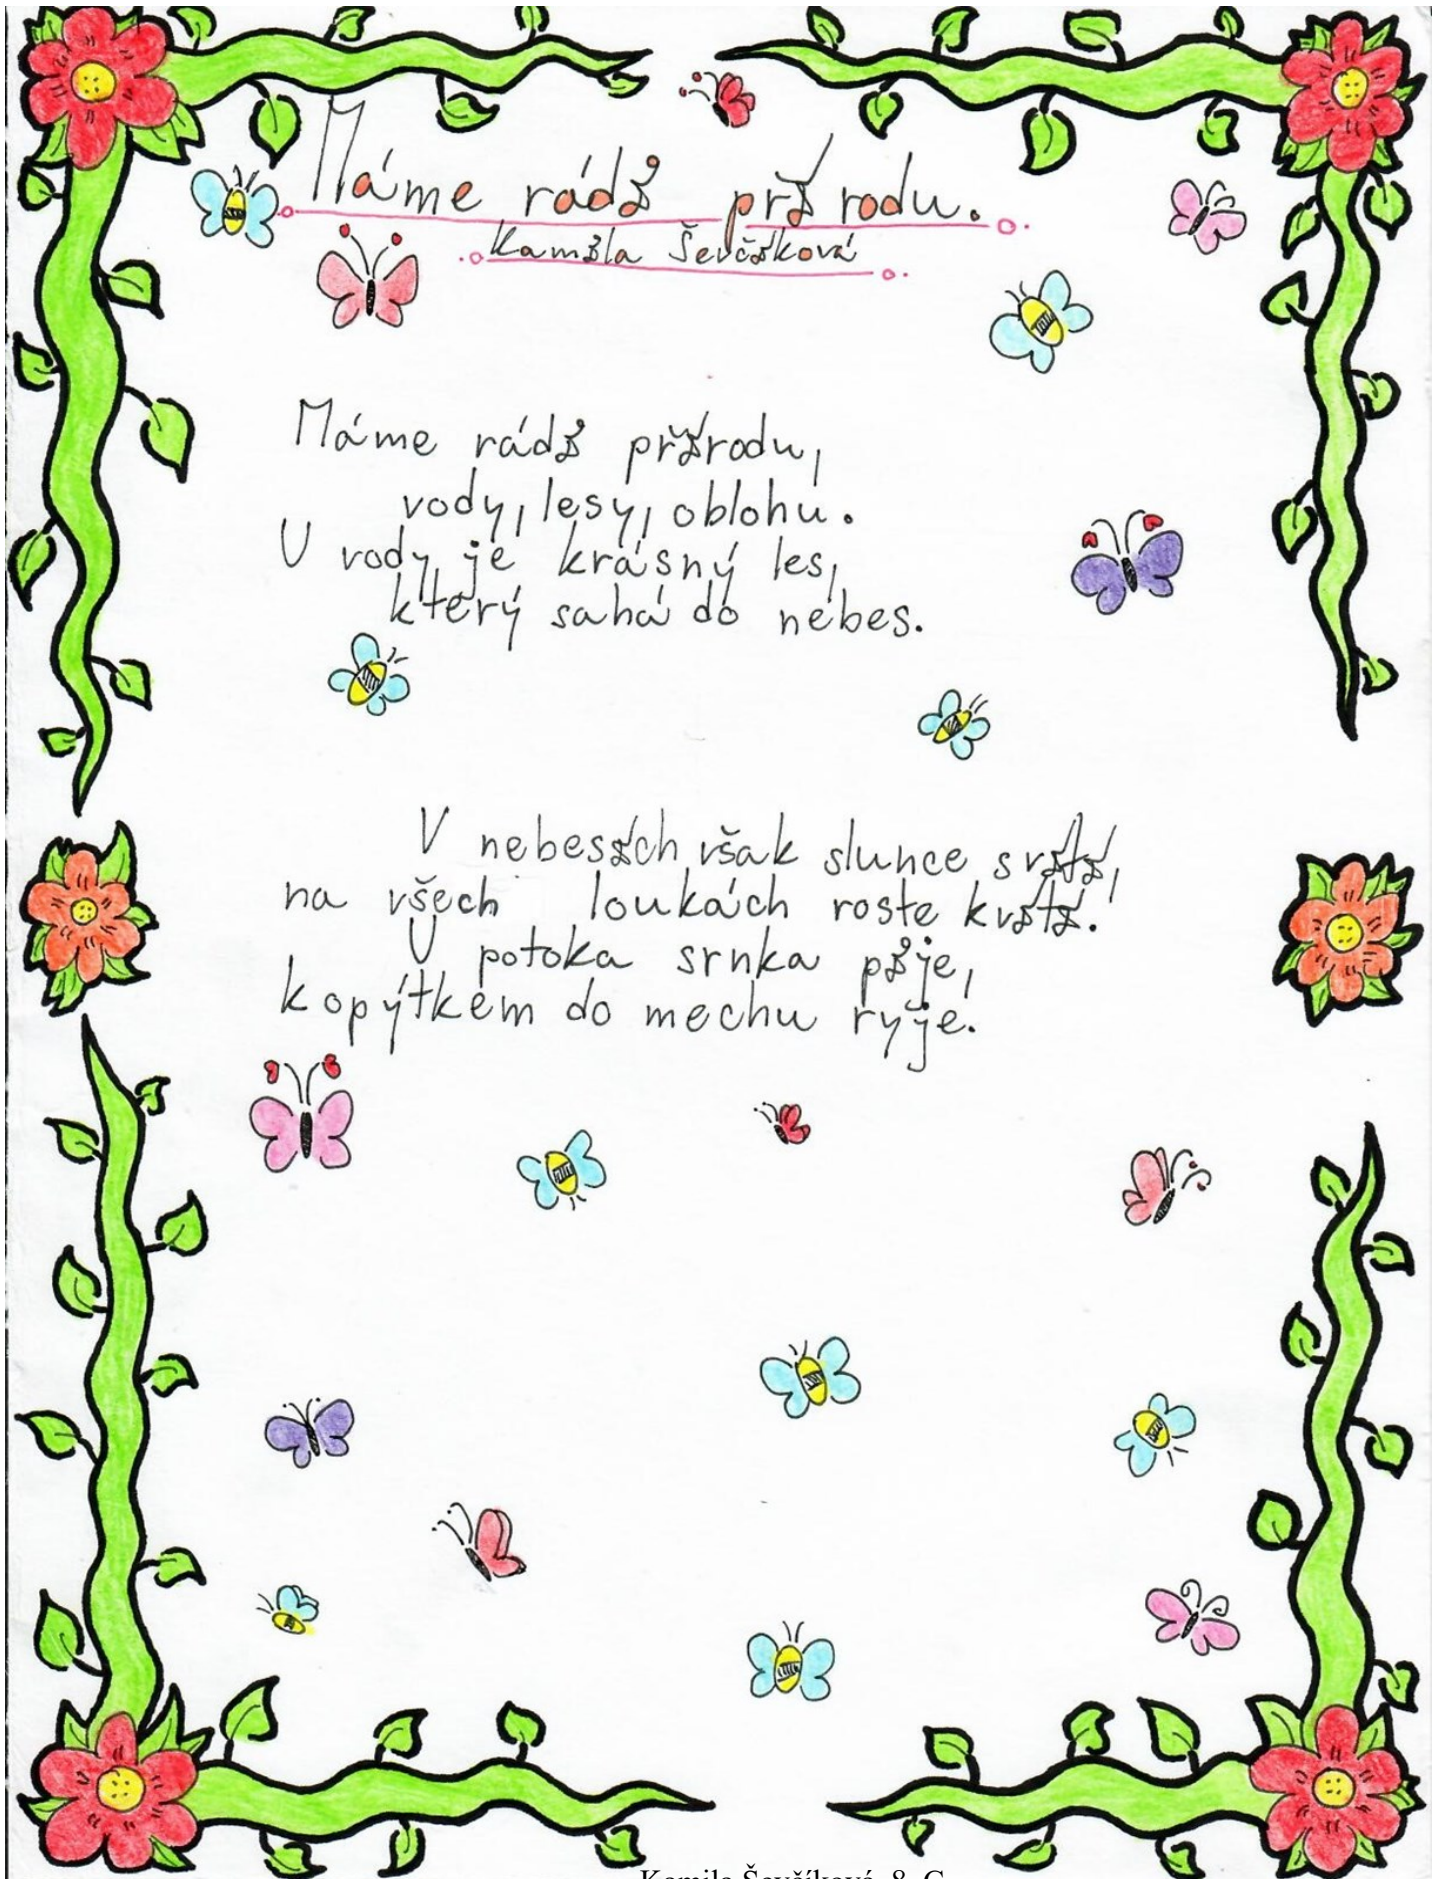 Máme rádi přírodu.
Kamila Ševčíková
Máme rádi přírodu,
vody, lesy, oblohu.
U vody je krásný les,
který sahá do nebes.
V nebesích však slunce svítí,
na všech loukách roste kvítí.
U potoka srnka pije,
kopýtkem do mechu ryje.
Kamila Ševčíková, 8. C